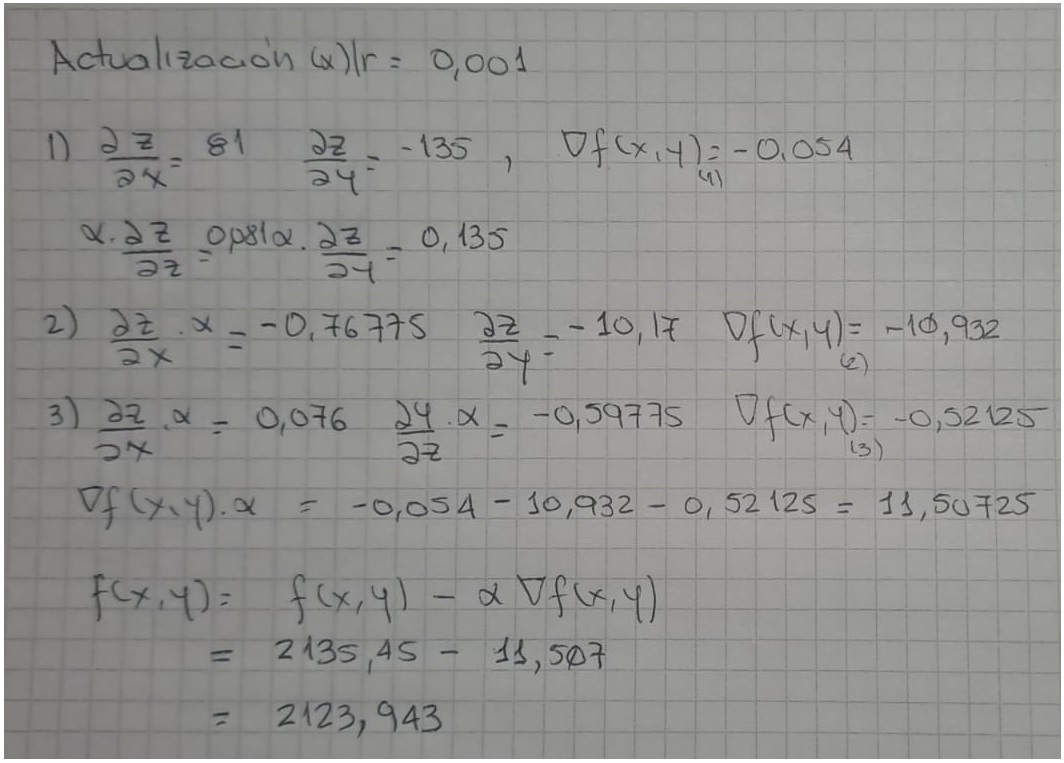 Actualización (α) lr = 0,001
1) ∂z/∂x = 81 ∂z/∂y = -135 , ∇f(x,y)(1) = -0.054
α. ∂z/∂z = 0,081 α. ∂z/∂y = 0,135
2) ∂z/∂x . α = -0,76775 ∂z/∂y = -10,17 ∇f(x,y)(2) = -10,932
3) ∂z/∂x . α = 0,076 ∂y/∂z . α = -0,59775 ∇f(x,y)(3) = -0,52125
∇f(x,y).α = -0,054 - 10,932 - 0,52125 = 11,50725
f(x,y) = f(x,y) - α ∇f(x,y)
= 2135,45 - 11,507
= 2123,943